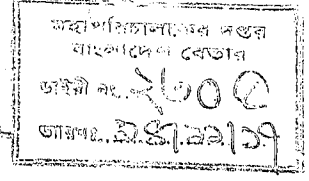 মহাপরিচালকের দপ্তর
বাংলাদেশ বেতার
ডাইরী নং ২৬০৫
তারিখঃ